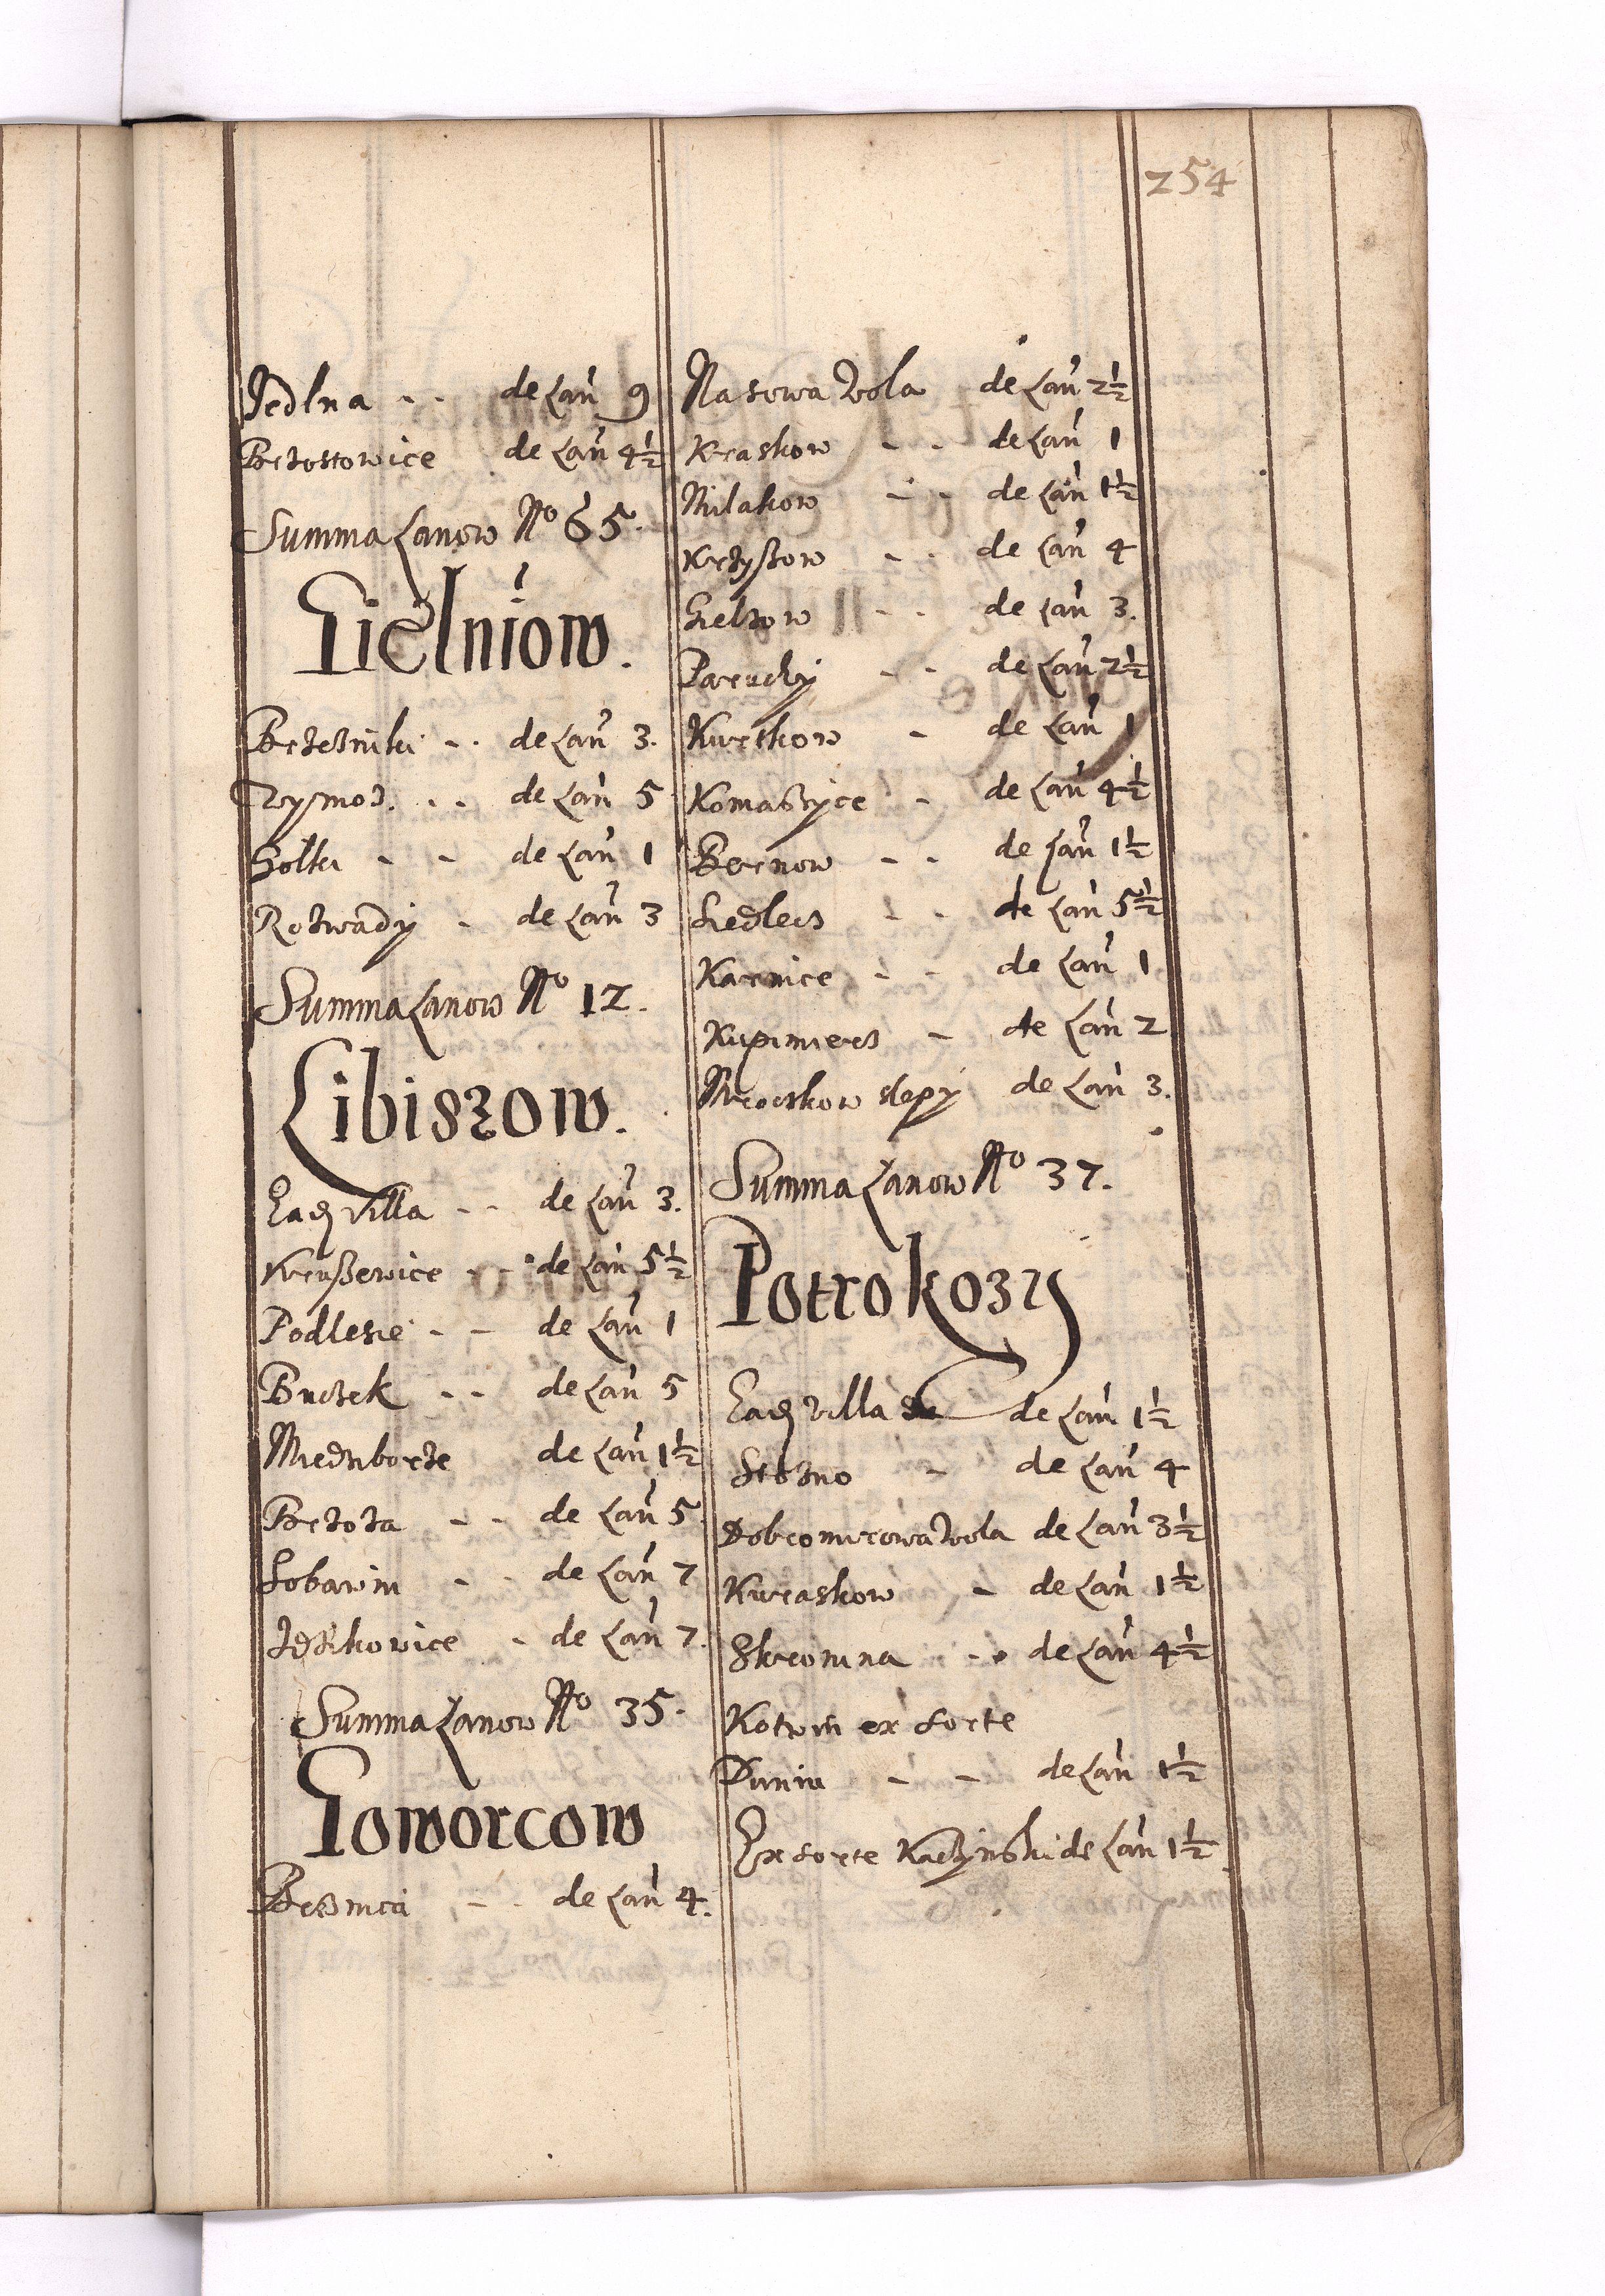 254
Jedlna - - de Łań 9
Brzostowice de Łań 4½
Summa Łanow No 65.
Gielniow.
Brzezinki - - de Łań 3.
Rysmoz. - - de Łań 5
Zolki - - de Łań 1
Rozwady - de Łań 3
Summa Łanow No 12.
Libiszow.
Eadē Villa - - de Łań 3.
Kraßewice - - de Łań 5½
Podlesie - - de Łań 1
Buczek - - de Łań 5
Miedzborze de Łań 1½
Brzoza - - de Łań 5.
Sobawin - - de Łań 7
Idzikowice - de Łań 7.
Summa Łanow No 35.
Goworcow
de Łań 4.
Nasowa Wola de Łań 2½
Kraskow - - de Łań 1
Milakow - - de Łań 1½
Krzyßow - - de Łań 4
Gielzow - - de Łań 3.
Paruchy - - de Łań 2½
Kurskow - de Łań 1
Komaszyce - de Łań 4½
Bernow - - de Łań 1½
Siedlecs - - de Łań 5½
Karnice - - de Łań 1
Kupimiers - de Łań 2
Mroczkow slepy de Łań 3.
Summa Łanow No 37.
Potrokozy
Eadē Villa de Łań 1½
Stozno - de Łań 4
Dobromirowa Wola de Łań 3½
Kuraskow - de Łań 1½
Skromna - - de Łań 4½
Kotwin ex sorte
Dunin - - de Łań 1½
Ex sorte Kaczynski de Łań 1½